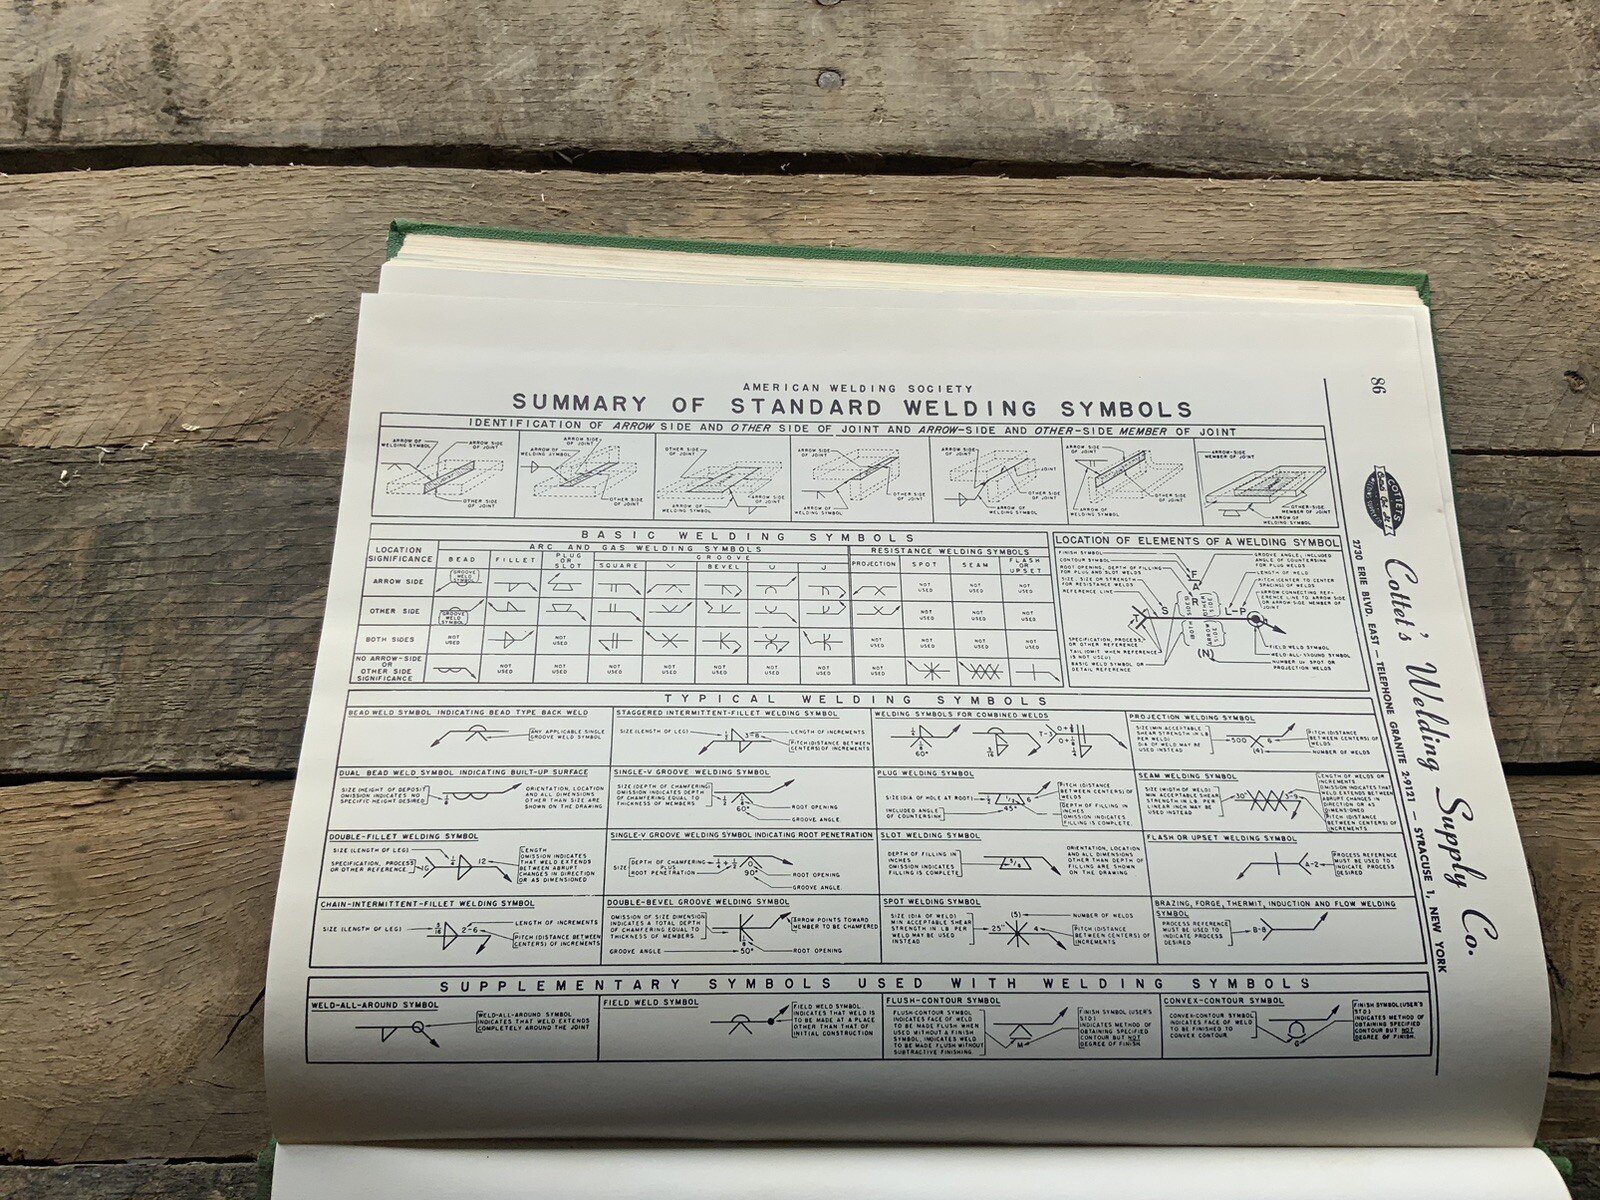 AMERICAN WELDING SOCIETY
SUMMARY OF STANDARD WELDING SYMBOLS
IDENTIFICATION OF ARROW SIDE AND OTHER SIDE OF JOINT AND ARROW-SIDE AND OTHER-SIDE MEMBER OF JOINT
ARROW OF
WELDING SYMBOL
ARROW SIDE
OF JOINT
OTHER SIDE
OF JOINT
ARROW SIDE
OF JOINT
ARROW OF
WELDING SYMBOL
OTHER SIDE
OF JOINT
OTHER SIDE
OF JOINT
ARROW SIDE
OF JOINT
ARROW OF
WELDING SYMBOL
ARROW SIDE
OF JOINT
OTHER SIDE
OF JOINT
ARROW OF
WELDING SYMBOL
ARROW SIDE
OF JOINT
JOINT
OTHER SIDE
OF JOINT
ARROW OF
WELDING SYMBOL
ARROW SIDE
OF JOINT
OTHER SIDE
OF JOINT
ARROW OF
WELDING SYMBOL
ARROW-SIDE
MEMBER OF JOINT
OTHER-SIDE
MEMBER OF JOINT
ARROW OF
WELDING SYMBOL
BASIC WELDING SYMBOLS
LOCATION
SIGNIFICANCE
ARC AND GAS WELDING SYMBOLS
RESISTANCE WELDING SYMBOLS
BEAD
FILLET
PLUG
OR
SLOT
GROOVE
SQUARE
V
BEVEL
U
J
PROJECTION
SPOT
SEAM
FLASH
OR
UPSET
ARROW SIDE
GROOVE
WELD
SYMBOL
NOT
USED
NOT
USED
NOT
USED
OTHER SIDE
GROOVE
WELD
SYMBOL
NOT
USED
NOT
USED
NOT
USED
BOTH SIDES
NOT
USED
NOT
USED
NOT
USED
NOT
USED
NOT
USED
NOT
USED
NO ARROW-SIDE
OR
OTHER SIDE
SIGNIFICANCE
NOT
USED
NOT
USED
NOT
USED
NOT
USED
NOT
USED
NOT
USED
NOT
USED
NOT
USED
LOCATION OF ELEMENTS OF A WELDING SYMBOL
FINISH SYMBOL
CONTOUR SYMBOL
ROOT OPENING, DEPTH OF FILLING
FOR PLUG AND SLOT WELDS
SIZE, SIZE OR STRENGTH
FOR RESISTANCE WELDS
REFERENCE LINE
SPECIFICATION, PROCESS,
OR OTHER REFERENCE
TAIL (OMIT WHEN REFERENCE
IS NOT USED)
BASIC WELD SYMBOL OR
DETAIL REFERENCE
F
A
R
T
S
L-P
(N)
BOTH
SIDES
OTHER
SIDE
ARROW
SIDE
GROOVE ANGLE, INCLUDED
ANGLE OF COUNTERSINK
FOR PLUG WELDS
LENGTH OF WELD
PITCH (CENTER TO CENTER
SPACING) OF WELDS
ARROW CONNECTING REF-
ERENCE LINE TO ARROW SIDE
OR ARROW-SIDE MEMBER OF
JOINT
FIELD WELD SYMBOL
WELD-ALL-AROUND SYMBOL
NUMBER OF SPOT OR
PROJECTION WELDS
TYPICAL WELDING SYMBOLS
BEAD WELD SYMBOL INDICATING BEAD TYPE BACK WELD
ANY APPLICABLE SINGLE
GROOVE WELD SYMBOL
STAGGERED INTERMITTENT-FILLET WELDING SYMBOL
SIZE (LENGTH OF LEG)
3-8
LENGTH OF INCREMENTS
PITCH (DISTANCE BETWEEN
CENTERS) OF INCREMENTS
WELDING SYMBOLS FOR COMBINED WELDS
60°
T-3
PROJECTION WELDING SYMBOL
SIZE (MIN ACCEPTABLE
SHEAR STRENGTH IN LB
PER WELD)
DIA OF WELD MAY BE
USED INSTEAD
500
6
(4)
PITCH (DISTANCE
BETWEEN CENTERS) OF
WELDS
NUMBER OF WELDS
DUAL BEAD WELD SYMBOL INDICATING BUILT-UP SURFACE
SIZE (HEIGHT OF DEPOSIT)
OMISSION INDICATES NO
SPECIFIC HEIGHT DESIRED
ORIENTATION, LOCATION
AND ALL DIMENSIONS
OTHER THAN SIZE ARE
SHOWN ON THE DRAWING
SINGLE-V GROOVE WELDING SYMBOL
SIZE (DEPTH OF CHAMFERING)
OMISSION INDICATES DEPTH
OF CHAMFERING EQUAL TO
THICKNESS OF MEMBERS
60°
ROOT OPENING
GROOVE ANGLE
PLUG WELDING SYMBOL
SIZE (DIA OF HOLE AT ROOT)
INCLUDED ANGLE
OF COUNTERSINK
45°
6
PITCH (DISTANCE
BETWEEN CENTERS)
OF WELDS
DEPTH OF FILLING IN
INCHES
OMISSION INDICATES
FILLING IS COMPLETE
SEAM WELDING SYMBOL
SIZE (WIDTH OF WELD)
MIN ACCEPTABLE SHEAR
STRENGTH IN LB. PER
LINEAR INCH MAY BE
USED INSTEAD
LENGTH OF WELDS OR
INCREMENTS.
OMISSION INDICATES THAT
WELD EXTENDS BETWEEN
ABRUPT CHANGES IN
DIRECTION OR AS
DIMENSIONED
PITCH (DISTANCE
BETWEEN CENTERS) OF
INCREMENTS
DOUBLE-FILLET WELDING SYMBOL
SIZE (LENGTH OF LEG)
SPECIFICATION, PROCESS
OR OTHER REFERENCE
12
LENGTH
OMISSION INDICATES
THAT WELD EXTENDS
BETWEEN ABRUPT
CHANGES IN DIRECTION
OR AS DIMENSIONED
SINGLE-V GROOVE WELDING SYMBOL INDICATING ROOT PENETRATION
SIZE
DEPTH OF CHAMFERING
PLUS
ROOT PENETRATION
0
90°
ROOT OPENING
GROOVE ANGLE
SLOT WELDING SYMBOL
DEPTH OF FILLING IN
INCHES
OMISSION INDICATES
FILLING IS COMPLETE
ORIENTATION, LOCATION
AND ALL DIMENSIONS
OTHER THAN DEPTH OF
FILLING ARE SHOWN
ON THE DRAWING
FLASH OR UPSET WELDING SYMBOL
A-2
PROCESS REFERENCE
MUST BE USED TO
INDICATE PROCESS
DESIRED
CHAIN-INTERMITTENT-FILLET WELDING SYMBOL
SIZE (LENGTH OF LEG)
2-6
LENGTH OF INCREMENTS
PITCH (DISTANCE BETWEEN
CENTERS) OF INCREMENTS
DOUBLE-BEVEL GROOVE WELDING SYMBOL
OMISSION OF SIZE DIMENSION
INDICATES A TOTAL DEPTH
OF CHAMFERING EQUAL TO
THICKNESS OF MEMBERS
GROOVE ANGLE
50°
ARROW POINTS TOWARD
MEMBER TO BE CHAMFERED
ROOT OPENING
SPOT WELDING SYMBOL
SIZE (DIA OF WELD)
MIN ACCEPTABLE SHEAR
STRENGTH IN LB PER
WELD MAY BE USED
INSTEAD
(5)
4
NUMBER OF WELDS
PITCH (DISTANCE
BETWEEN CENTERS) OF
INCREMENTS
BRAZING, FORGE, THERMIT, INDUCTION AND FLOW WELDING
SYMBOL
PROCESS REFERENCE
MUST BE USED TO
INDICATE PROCESS
DESIRED
B-8
SUPPLEMENTARY SYMBOLS USED WITH WELDING SYMBOLS
WELD-ALL-AROUND SYMBOL
WELD-ALL-AROUND SYMBOL
INDICATES THAT WELD EXTENDS
COMPLETELY AROUND THE JOINT
FIELD WELD SYMBOL
FIELD WELD SYMBOL
INDICATES THAT WELD IS
TO BE MADE AT A PLACE
OTHER THAN THAT OF
INITIAL CONSTRUCTION
FLUSH-CONTOUR SYMBOL
FLUSH-CONTOUR SYMBOL
INDICATES FACE OF WELD
TO BE MADE FLUSH WHEN
USED WITHOUT A FINISH
SYMBOL, INDICATES WELD
TO BE MADE FLUSH WITHOUT
SUBTRACTIVE FINISHING.
M
FINISH SYMBOL (USER'S
STD.)
INDICATES METHOD OF
OBTAINING SPECIFIED
CONTOUR BUT NOT
DEGREE OF FINISH
CONVEX-CONTOUR SYMBOL
CONVEX-CONTOUR SYMBOL
INDICATES FACE OF WELD
TO BE FINISHED TO
CONVEX CONTOUR
G
FINISH SYMBOL (USER'S
STD.)
INDICATES METHOD OF
OBTAINING SPECIFIED
CONTOUR BUT NOT
DEGREE OF FINISH.
86
COTTET'S
Cottet's Welding Supply Co.
2730 ERIE BLVD. EAST — TELEPHONE GRANITE 2-9121 — SYRACUSE 1, NEW YORK